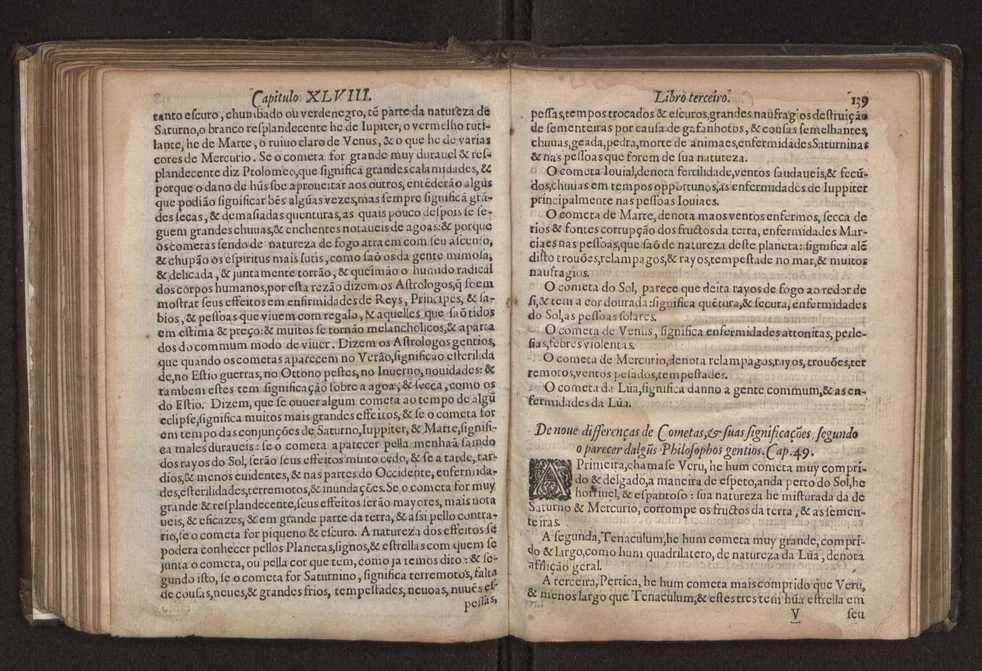 Capitulo XLVIII.
tanto escuro, chumbado ou verdenegro, tē parte da natureza de
Saturno, o branco resplandecente he de Iupiter, o vermelho ruti-
lante, he de Marte, o ruiuo claro de Venus, & o que he de varias
cores de Mercurio. Se o cometa for grande muy durauel & res-
plandecente diz Ptolomeo, que significa grandes calamidades, &
porque o dano de hūs soe aproueitar aos outros, entēderāo algūs
que podião significar bēs algūas vezes, mas sempre significā grā-
des secas, & demasiadas quenturas, as quais pouco despois se se-
guem grandes chuuas, & enchentes notaueis de agoas: & porque
os cometas sendo de natureza de fogo atraem com seu ascenso,
& chupão os espiritus mais sutis, como saõ os da gente mimosa,
& delicada, & juntamente torrão, & queimão o humido radical
dos corpos humanos, por esta rezão dizem os Astrologos, q̃ soem
mostrar seus effeitos em enfirmidades de Reys, Principes, & sa-
bios, & pessoas que viuem com regalo, & aquelles que saõ tidos
em estima & preço: & muitos se tornão melancholicos, & aparta
dos do commum modo de viuer. Dizem os Astrologos gentios,
que quando os cometas aparecem no Verão, significao esterilida
de, no Estio guerras, no Ottono pestes, no Inuerno, nouidades: &
tambem estes tem significação sobre a agoa, & secca, como os
do Estio. Dizem, que se ouuer algum cometa ao tempo de algū
eclipse, significa muitos mais grandes effeitos, & se o cometa for
em tempo das conjunções de Saturno, Iuppiter, & Marte, signifi-
ca males duraueis: se o cometa aparecer pella menhaã saindo
dos rayos do Sol, serão seus effeitos muito cedo, & se a tarde, tar-
dios, & menos euidentes, & nas partes do Occidente, enfermida-
des, esterilidades, terremotos, & inundações. Se o cometa for muy
grande & resplandecente, seus effeitos serão mayores, mais nota
ueis, & eficazes, & em grande parte da terra, & assi pello contra-
rio, se o cometa for piqueno & escuro. A natureza dos effeitos se
podera conhecer pellos Planetas, signos, & estrellas com quem se
junta o cometa, ou pella cor que tem, como ja temos dito: & se-
gundo isto, se o cometa for Saturnino, significa terremotos, falta
de cousas, neues, & grandes frios, tempestades, neuoas, nuuēs es-
pessas,
Libro terceiro. 139
pessas, tempos trocados & escuros, grandes naufragios destruição
de sementeiras por causa de gafanhotos, & cousas semelhantes,
chuuas, geada, pedra, morte de animaes, enfermidades Saturninas
& nas pessoas que forem de sua natureza.
O cometa Iouial, denota fertilidade, ventos saudaueis, & fecū-
dos, chuuas em tempos opportunos, as enfermidades de Iuppiter
principalmente nas pessoas Iouiaes.
O cometa de Marte, denota maos ventos enfermos, secca de
rios & fontes corrupção dos fructos da terra, enfermidades Mar-
ciaes nas pessoas, que saõ de natureza deste planeta: significa alē
disto trouões, relampagos, & rayos, tempestade no mar, & muitos
naufragios.
O cometa do Sol, parece que deita rayos de fogo ao redor de
si, & tem a cor dourada: significa quētura, & secura, enfermidades
do Sol, as pessoas solares.
O cometa de Venus, significa enfermidades attonitas, perle-
sias, febres violentas.
O cometa de Mercurio, denota relampagos, rayos, trouões, ter
remotos, ventos pesados, tempestades.
O cometa da Lūa, significa danno a gente commum, & as en-
fermidades da Lūa.
De noue differenças de Cometas, & suas significações, segundo
o parecer dalgūs Philosophos gentios. Cap. 49.
A Primeira, chamase Veru, he hum cometa muy compri-
do & delgado, a maneira de espeto, anda perto do Sol, he
horriuel, & espantoso: sua natureza he misturada da de
Saturno & Mercurio, corrompe os fructos da terra, & as semen-
teiras.
A segunda, Tenaculum, he hum cometa muy grande, compri-
do & largo, como hum quadrilatero, de natureza da Lūa, denota
afflição geral.
A terceira, Pertica, he hum cometa mais comprido que Veru,
& menos largo que Tenaculum, & estes tres tem hūa estrella em
V seu